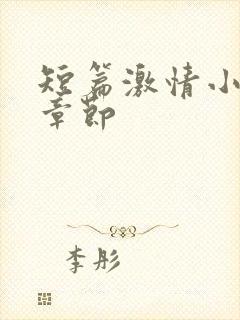 短篇激情小
章节
李彤